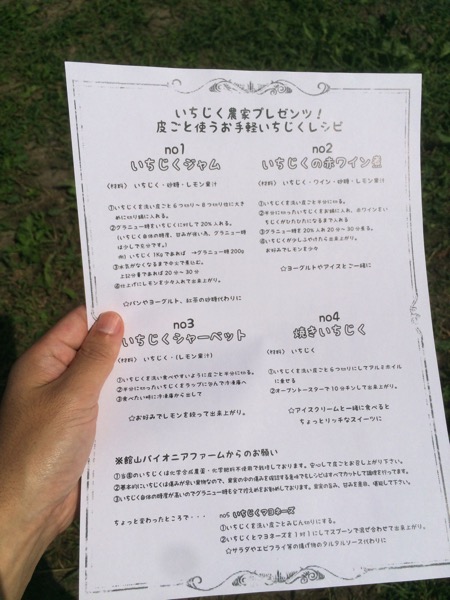 いちじく農家プレゼンツ！
皮ごと使うお手軽いちじくレシピ
no1
いちじくジャム
〈材料〉 いちじく・砂糖・レモン果汁
①いちじくを洗い皮ごと6つ切り~8つ切り位に大き
めに切り鍋に入れる。
②グラニュー糖をいちじくに対して20%入れる。
(いちじく自体の糖度、甘みが強い為、グラニュー糖
は少しで充分です。)
例) いちじく1Kgであれば →グラニュー糖200g
③水気がなくなるまで中火で煮込む。
上記分量であれば20分~30分
④仕上げにレモンを少々入れて出来上がり。
☆パンやヨーグルト、紅茶の砂糖代わりに
no2
いちじくの赤ワイン煮
〈材料〉 いちじく・ワイン・砂糖・レモン果汁
①いちじくを洗い皮ごと半分に切る。
②半分に切ったいちじくをお鍋に入れ、赤ワインをい
ちじくがひたひたになるまで入れる
③グラニュー糖を20%入れ20分~30分煮る。
④いちじくが少しふやけたら出来上がり。
お好みでレモンを少々
☆ヨーグルトやアイスとご一緒に
no3
いちじくシャーベット
〈材料〉 いちじく・(レモン果汁)
①いちじくを洗い食べやすいように皮ごと半分に切る。
②半分に切ったいちじくをラップに包んで冷凍庫へ
③食べたい時に冷凍庫から出して
☆お好みでレモンを絞って出来上がり。
no4
焼きいちじく
〈材料〉 いちじく
①いちじくを洗い皮ごと6つ切りにしてアルミホイル
に乗せる
②オーブントースターで10分チンして出来上がり。
☆アイスクリームと一緒に食べると
ちょっとリッチなスイーツに
※館山パイオニアファームからのお願い
①当園のいちじくは化学合成農薬・化学肥料不使用で栽培しております。安心して皮ごとお召し上がり下さい。
②基本的にいちじくは傷みが早い果物なので、果実の中の傷みを確認する意味でもレシピはすべてカットして調理を行ってます。
③いちじく自体の糖度が高いのでグラニュー糖も全て控えめをお勧めしております。果実の旨み、甘みを是非、堪能して下さい。
ちょっと変わったところで・・・
no5 いちじくマヨネーズ
①いちじくを洗い皮ごとみじん切りにする。
②いちじくとマヨネーズを1対1にしてスプーンで混ぜ合わせて出来上がり。
☆サラダやエビフライ等の揚げ物のタルタルソース代わりに